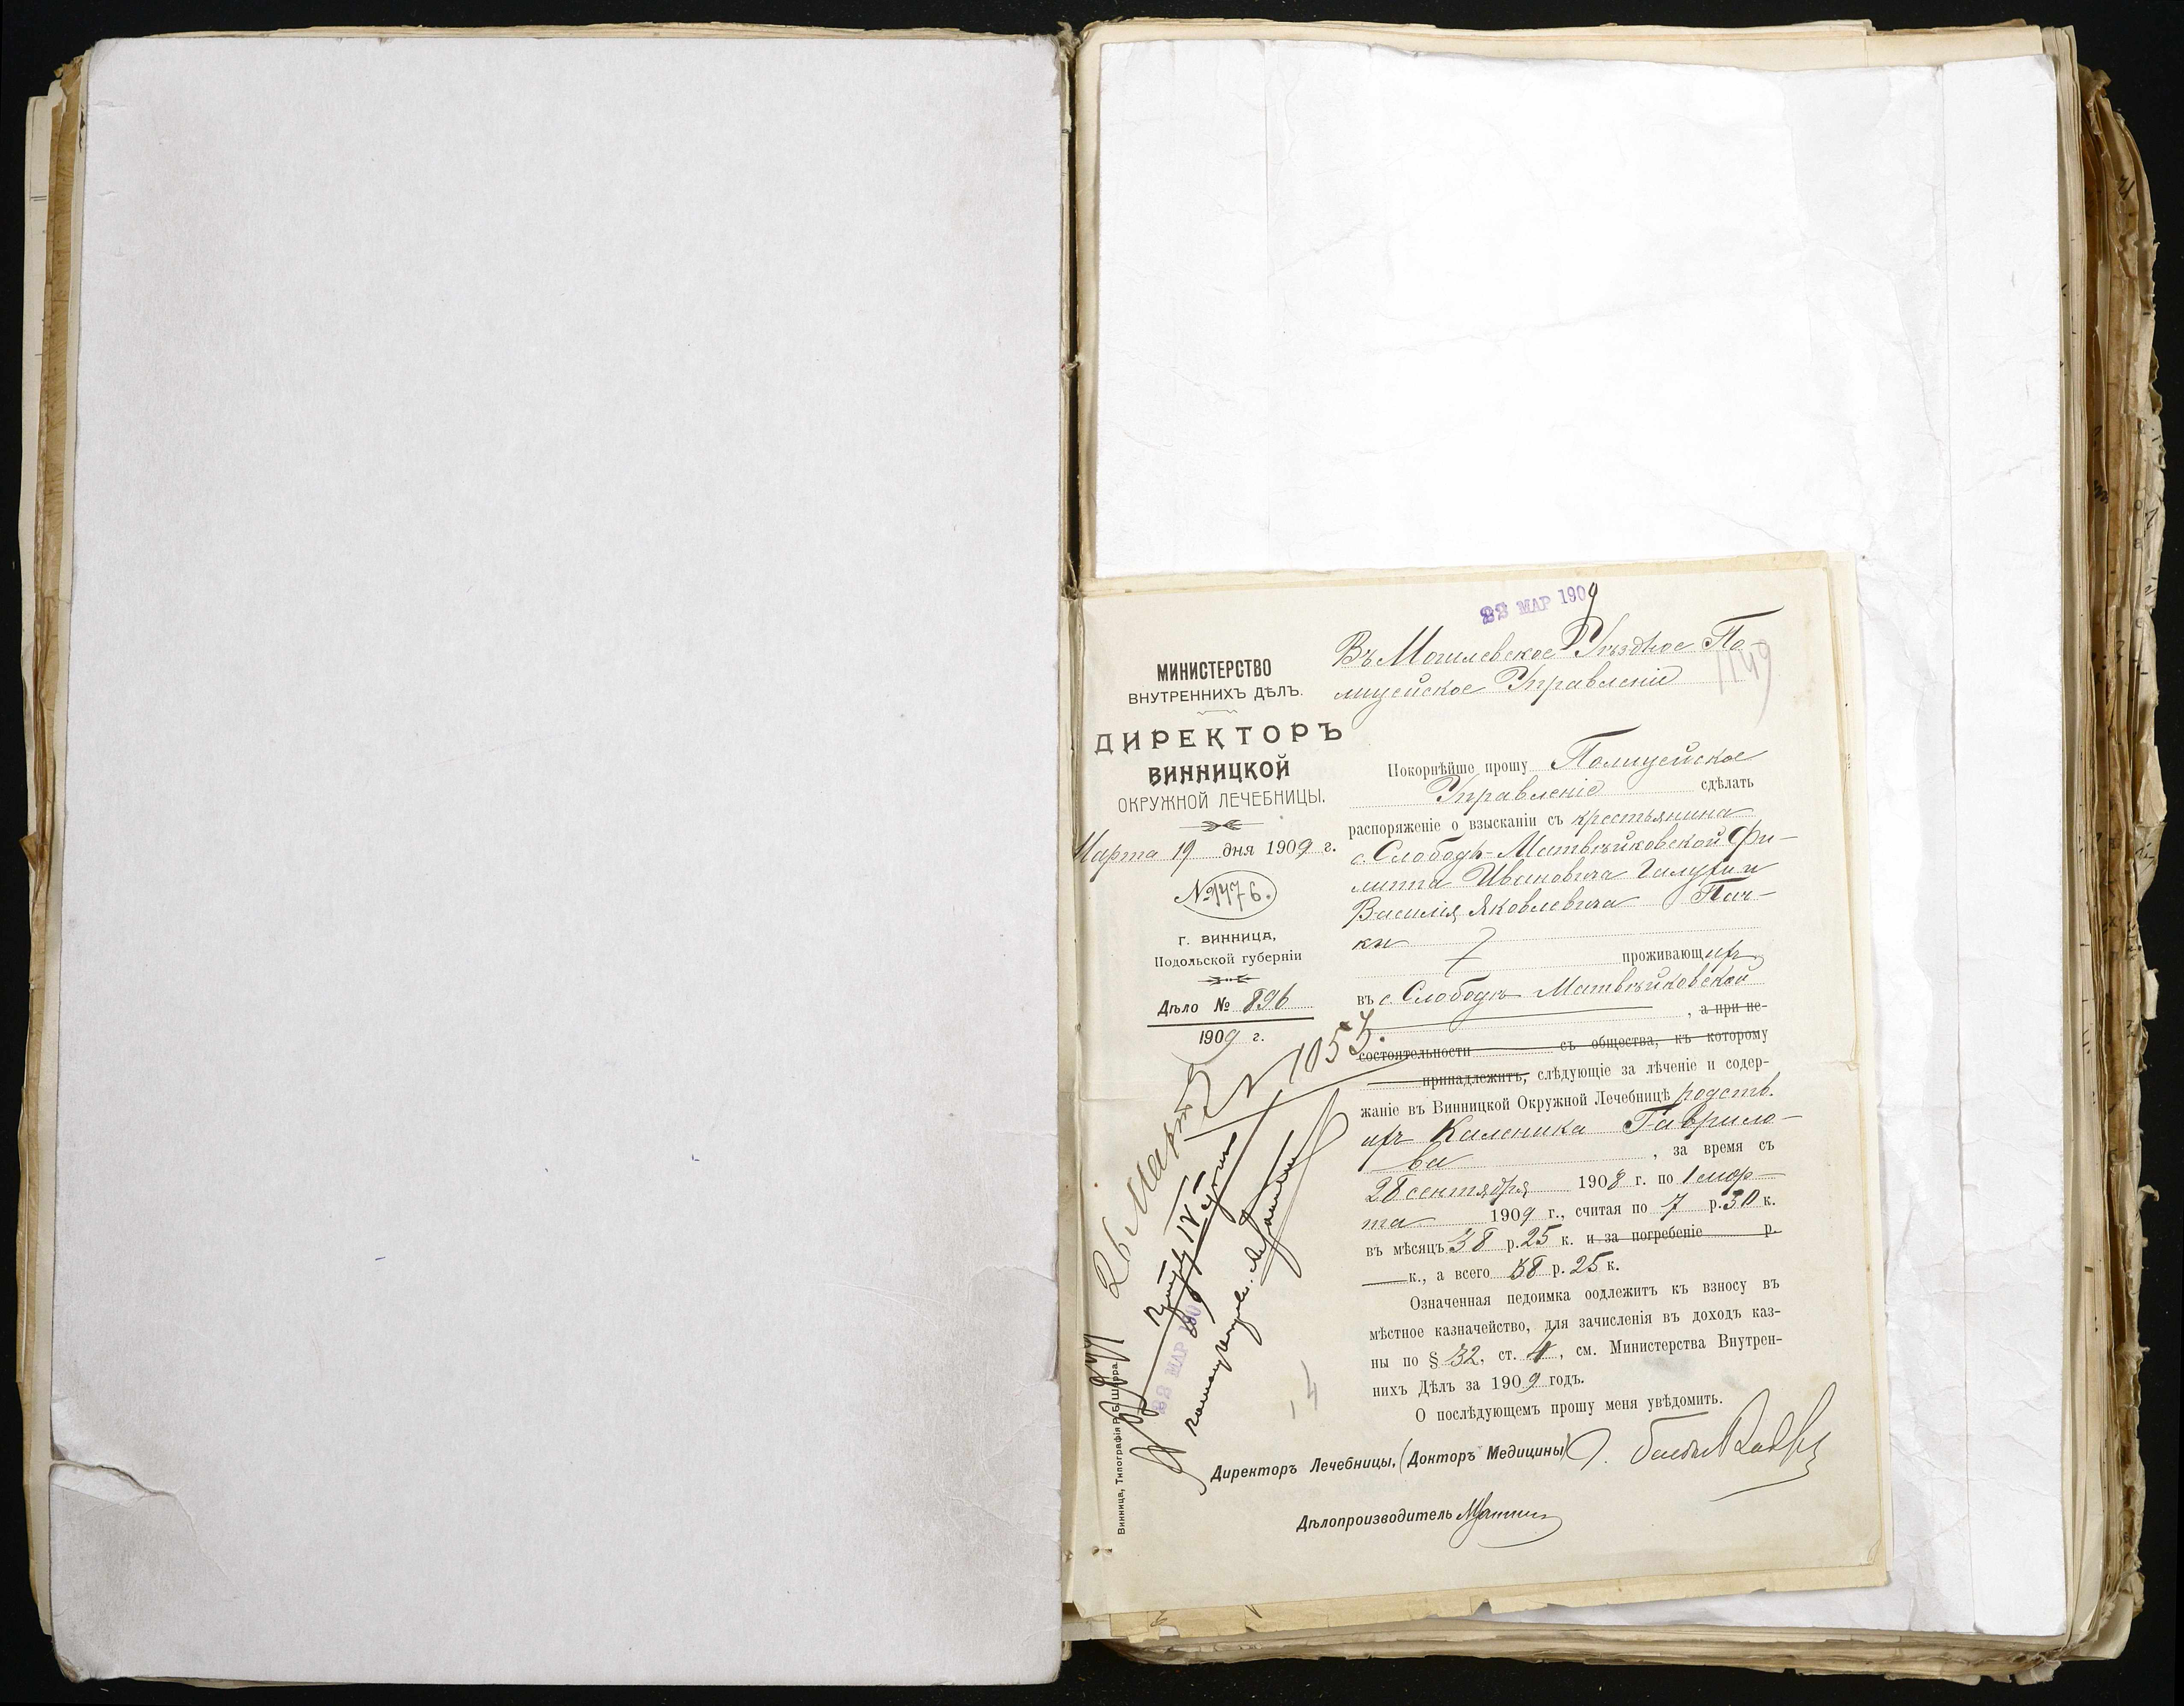 22 МАР 1909
МИНИСТЕРСТВО
ВНУТРЕННИХЪ ДѢЛЪ.
ДИРЕКТОРЪ
ВИННИЦКОЙ
ОКРУЖНОЙ ЛЕЧЕБНИЦЫ.
Марта 19 дня 1909 г.
№1476.
Г. ВИННИЦА,
Подольской губерніи
Дѣло № 896
1909 г.
Въ Могилевское Уѣздное По-
лицейское Управленіе
1149
Покорнѣйше прошу Полицейское
Управленіе сдѣлать
распоряженіе о взысканіи съ крестьянина
с. Слободы-Матвѣйковской Фи-
липпа Ивановича и
Василія Яковлевича Пач-
ки
проживающихъ
въ с. Слободѣ Матвѣйковской
, а при не-
состоятельности съ общества, къ которому
принадлежитъ, слѣдующіе за лѣченіе и содер-
жаніе въ Винницкой Окружной Лечебницѣ родств.
ихъ Каленика Гаврило-
ва , за время съ
28 сентября 1908 г. по 1 мар-
та 1909 г., считая по 7 р. 30 к.
въ мѣсяцъ 38 р. 25 к. и за погребеніе р.
к., а всего 38 р. 25 к.
Означенная недоимка подлежитъ къ взносу въ
мѣстное казначейство, для зачисленія въ доходъ каз-
ны по § 32, ст. 4, см. Министерства Внутрен-
нихъ Дѣлъ за 1909 годъ.
О послѣдующемъ прошу меня увѣдомить.
Директоръ Лечебницы, (Докторъ Медицины)
Дѣлопроизводитель
26 Марта 9 № 1053.
22 МАР 1909
Винница, Типографія Р. Б. Шерра.